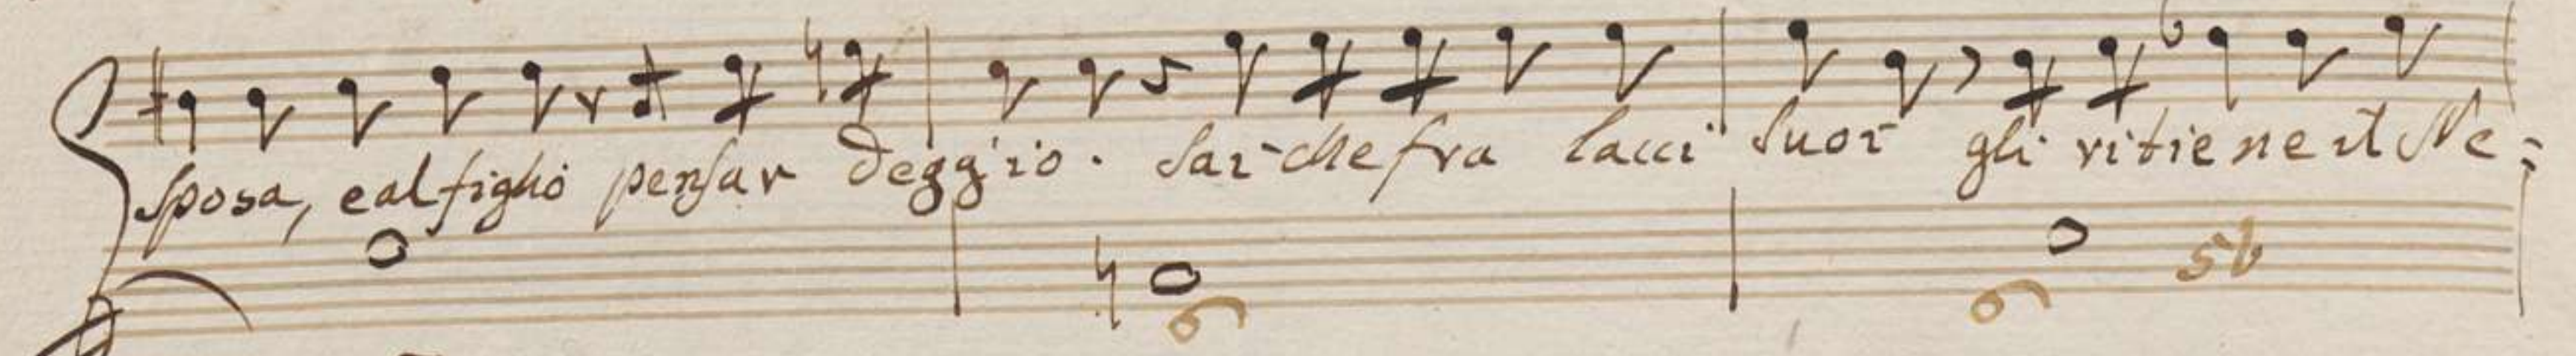 sposa, e al figlio pensar deggi'io. Sai che fra lacci suoi gli ritiene il Ne=
6 6 5b